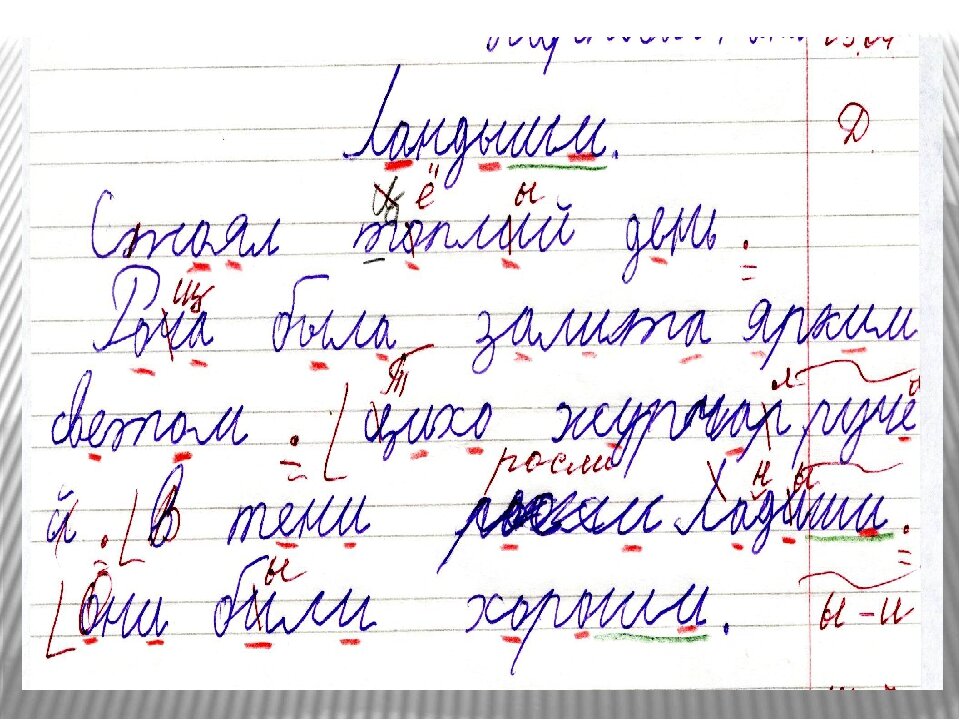 Ландыши. Д.
ё ы
Стоял топлий день.
щ
Роча была залита ярким
Т л
светом. цихо журчар ручё
росли н ы
й. В тени ладиши.
ы
они били хороши. ы-и